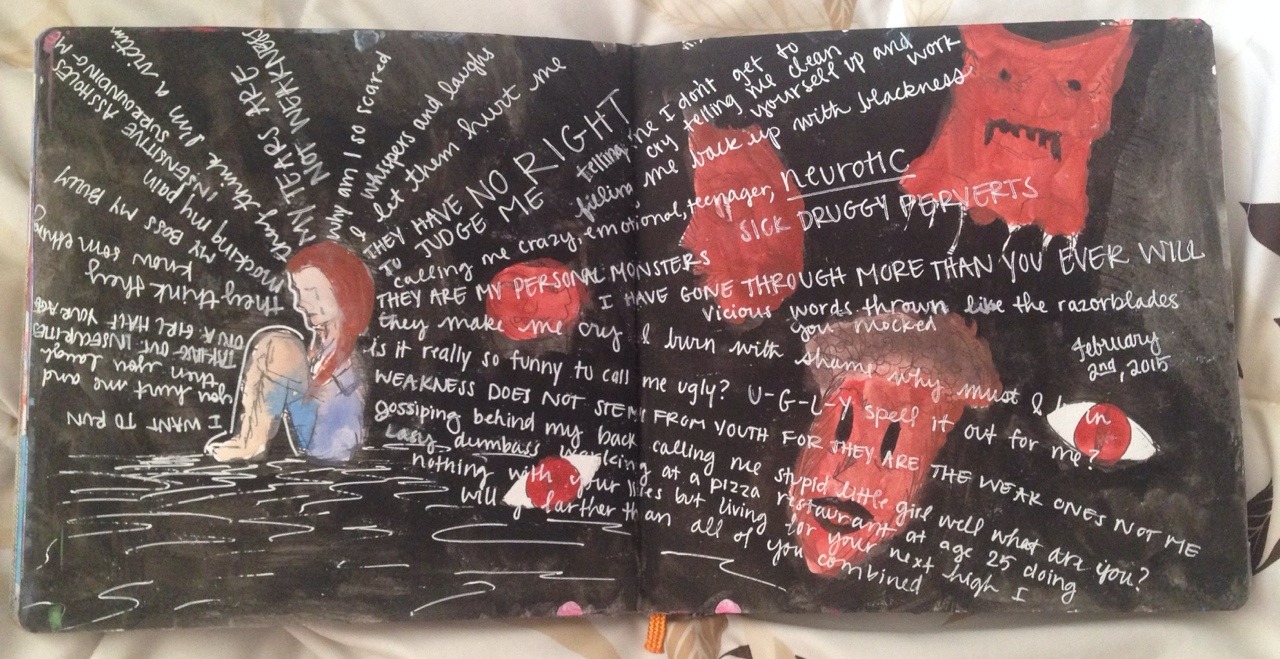 I WANT TO RUN
you hurt me and
then you laugh
TAKING OUT INSECURITIES
ON A GIRL HALF YOUR AGE
they think they
know something
MY BOSS MY BULLY
mocking my pain
INSENSITIVE ASSHOLES
SURROUNDING M
they think I'm a victim
MY TEARS ARE
NOT WEAKNESS
why am I so scared
whispers and laughs
I let them hurt me
THEY HAVE NO RIGHT
TO JUDGE ME
telling me I don't get to
cry telling me clean
yourself up and work
filling me back up with blackness
calling me crazy, emotional, teenager, neurotic
SICK DRUGGY PERVERTS
THEY ARE MY PERSONAL MONSTERS
I HAVE GONE THROUGH MORE THAN YOU EVER WILL
vicious words thrown like the razorblades
you mocked
they make me cry I burn with shame why must I burn
is it really so funny to call me ugly? U-G-L-Y spell it out for me?
WEAKNESS DOES NOT STEM FROM YOUTH FOR THEY ARE THE WEAK ONES NOT ME
gossiping behind my back calling me stupid little girl well what are you?
lazy dumbass working at a pizza restaurant at age 25 doing
nothing with your lives but living for your next high I
will go farther than all of you combined
february
2nd, 2015